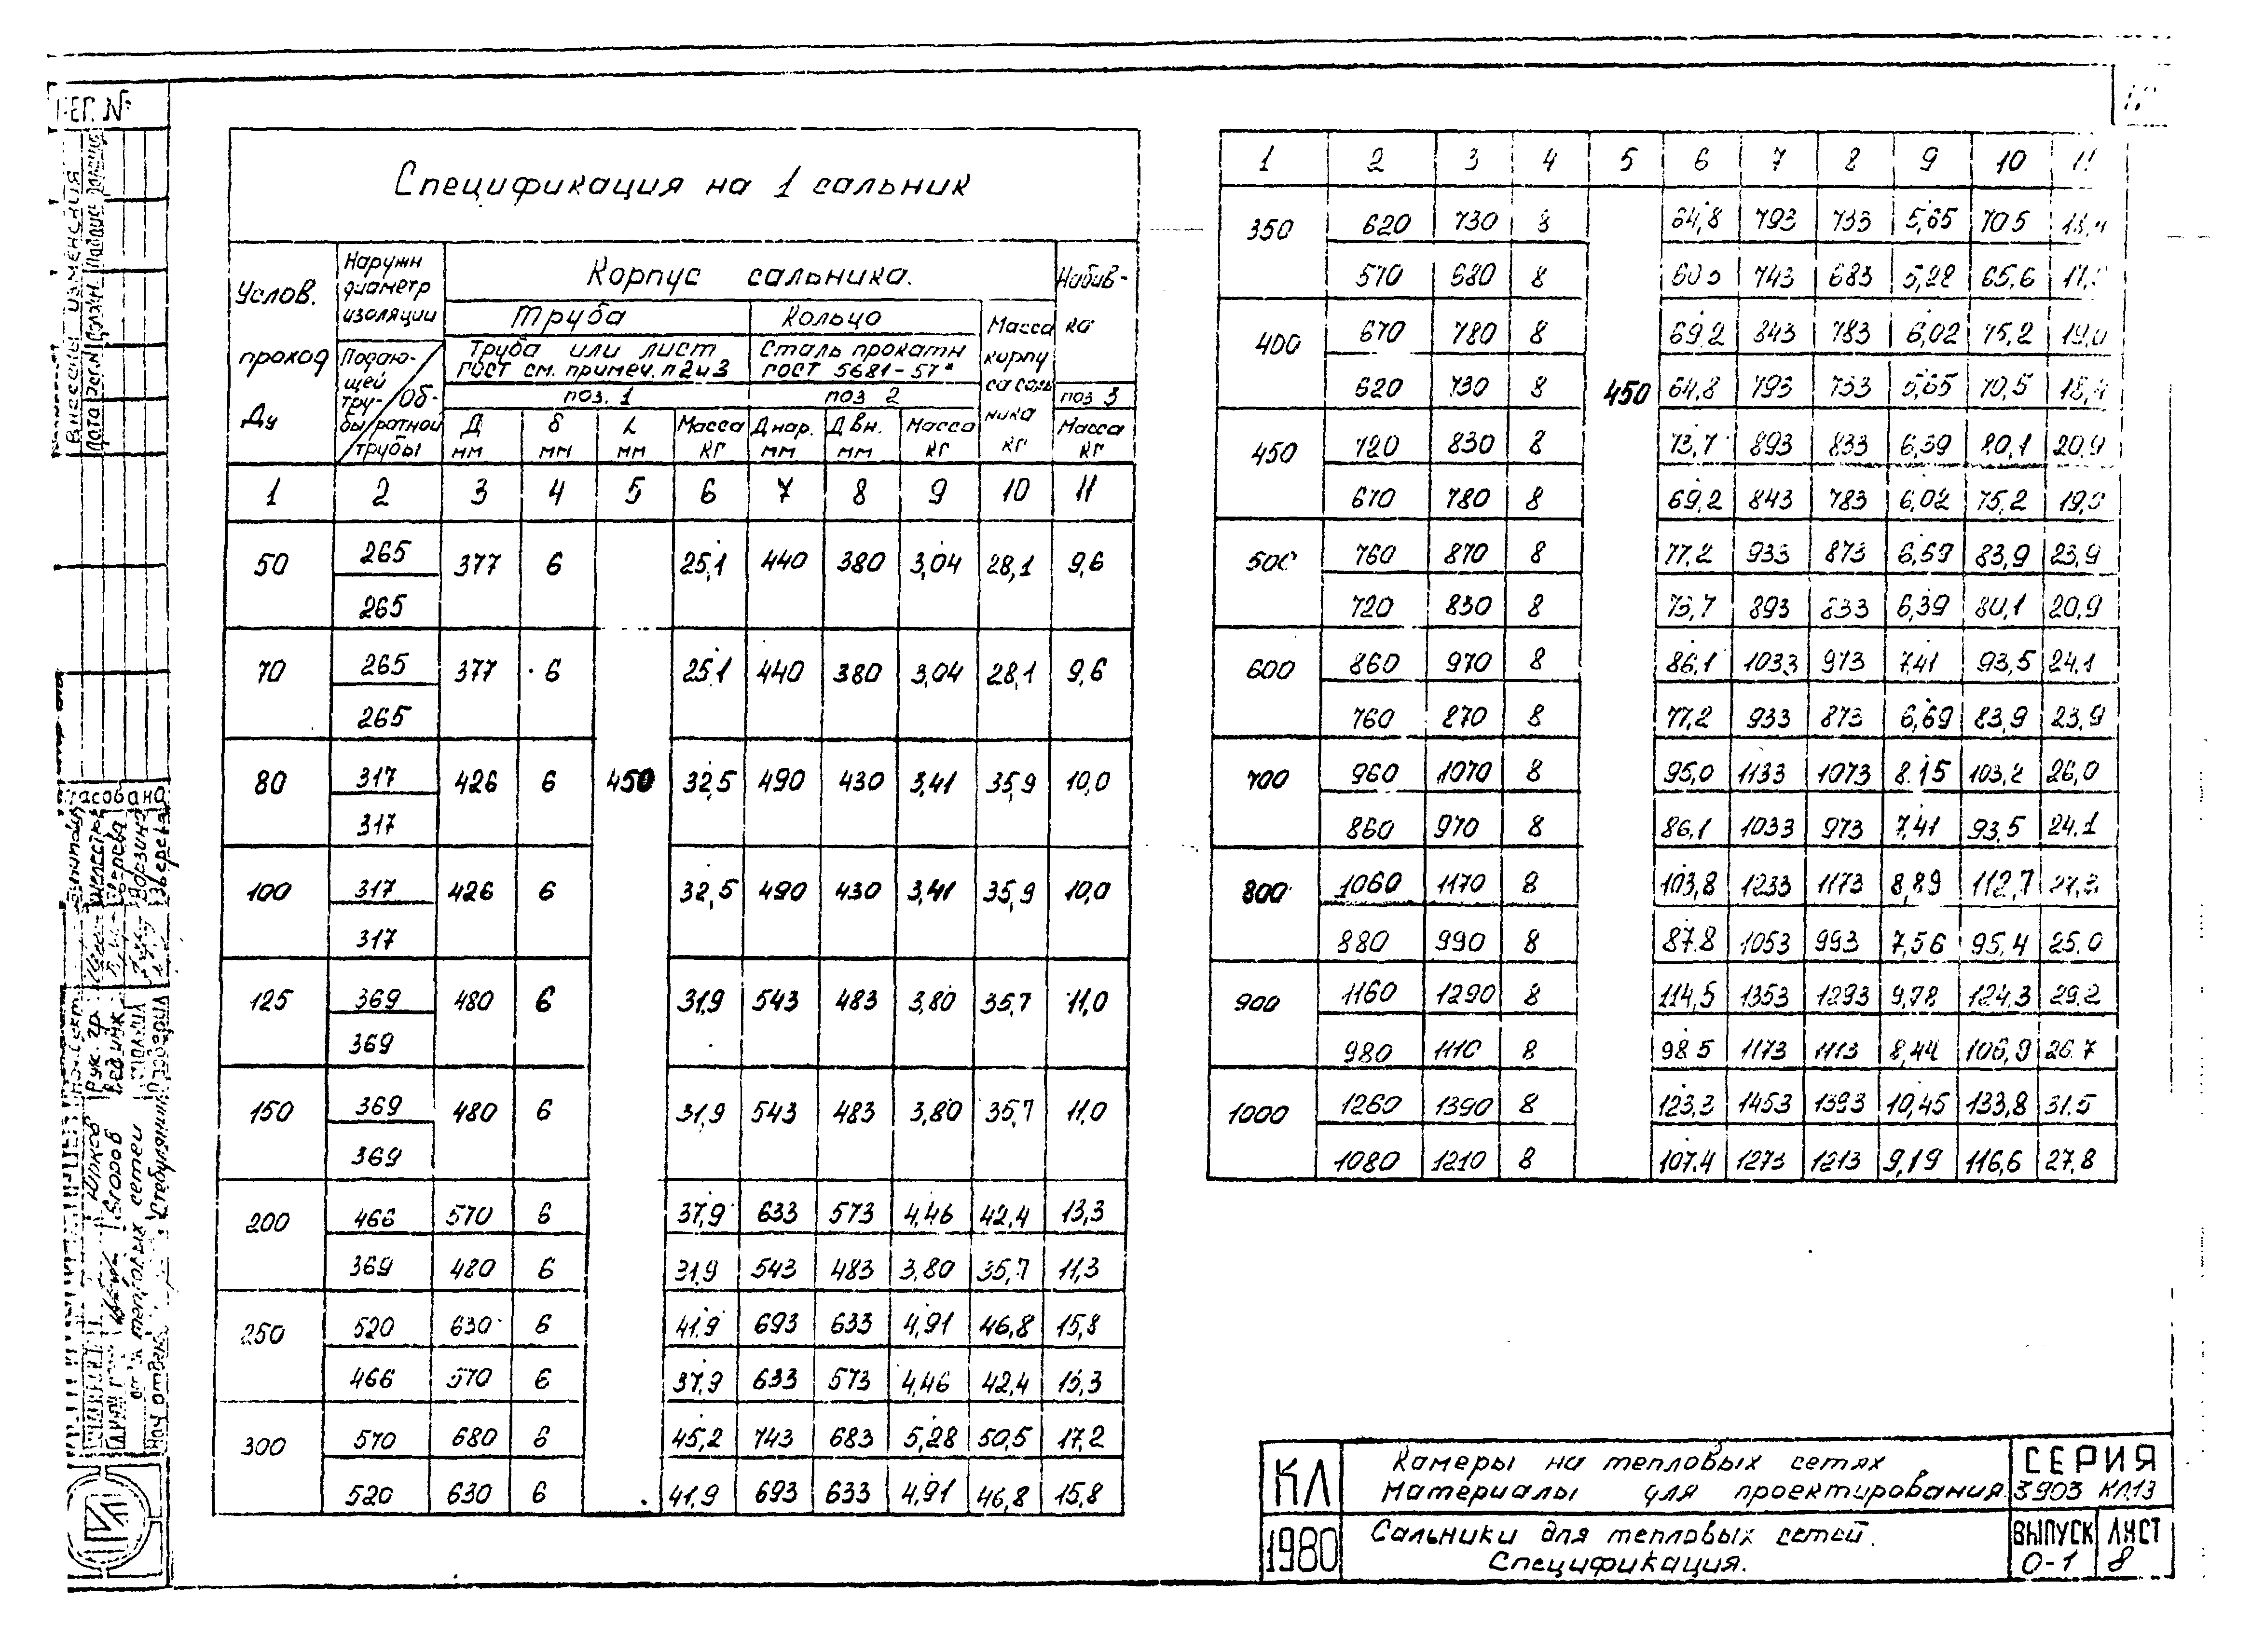 Спецификация на 1 сальник
Услов. проход Ду
Наружн диаметр изоляции
Подающей трубы / Обратной трубы
Корпус сальника.
Набивка
Труба
Кольцо
Масса корпуса сальника кг
Труба или лист
ГОСТ см. примеч. п 2 и 3
Сталь прокатн
ГОСТ 5681-57*
поз. 1
поз 2
поз 3
Д мм
δ мм
L мм
Масса кг
Д нар. мм
Д вн. мм
Масса кг
Масса кг
1 2 3 4 5 6 7 8 9 10 11
50 265 377 6 25,1 440 380 3,04 28,1 9,6
265
70 265 377 6 25,1 440 380 3,04 28,1 9,6
265
80 317 426 6 450 32,5 490 430 3,41 35,9 10,0
317
100 317 426 6 32,5 490 430 3,41 35,9 10,0
317
125 369 480 6 31,9 543 483 3,80 35,7 11,0
369
150 369 480 6 31,9 543 483 3,80 35,7 11,0
369
200 466 570 6 37,9 633 573 4,46 42,4 13,3
369 480 6 31,9 543 483 3,80 35,7 11,3
250 520 630 6 41,9 693 633 4,91 46,8 15,8
466 570 6 37,9 633 573 4,46 42,4 13,3
300 570 680 6 45,2 743 683 5,28 50,5 17,2
520 630 6 41,9 693 633 4,91 46,8 15,8
1 2 3 4 5 6 7 8 9 10 11
350 620 730 8 64,8 793 733 5,65 70,5
570 680 8 743 683 5,28 65,6
400 670 780 8 69,2 843 783 6,02 75,2 19,0
620 730 8 450 64,8 793 733 5,65 70,5 18,4
450 720 830 8 73,7 893 833 6,39 80,1 20,9
670 780 8 69,2 843 783 6,02 75,2 19,0
500 760 870 8 77,2 933 873 6,69 83,9 23,9
720 830 8 73,7 893 833 6,39 80,1 20,9
600 860 970 8 86,1 1033 973 7,41 93,5 24,1
760 870 8 77,2 933 873 6,69 83,9 23,9
700 960 1070 8 95,0 1133 1073 8,15 103,2 26,0
860 970 8 86,1 1033 973 7,41 93,5 24,1
800 1060 1170 8 103,8 1233 1173 8,89 112,7
880 990 8 87,8 1053 993 7,56 95,4 25,0
900 1160 1290 8 114,5 1353 1293 9,78 124,3 29,2
980 1110 8 98 5 1173 1113 8,44 106,9 26.7
1000 1260 1390 8 123,3 1453 1393 10,45 133,8 31.5
1080 1210 8 107,4 1273 1213 9,19 116,6 27,8
КЛ
1980
Камеры на тепловых сетях
Материалы для проектирования.
СЕРИЯ
3903 КЛ13
Сальники для тепловых сетей.
Спецификация.
ВЫПУСК
0-1
ЛИСТ
8
Внесены изменения